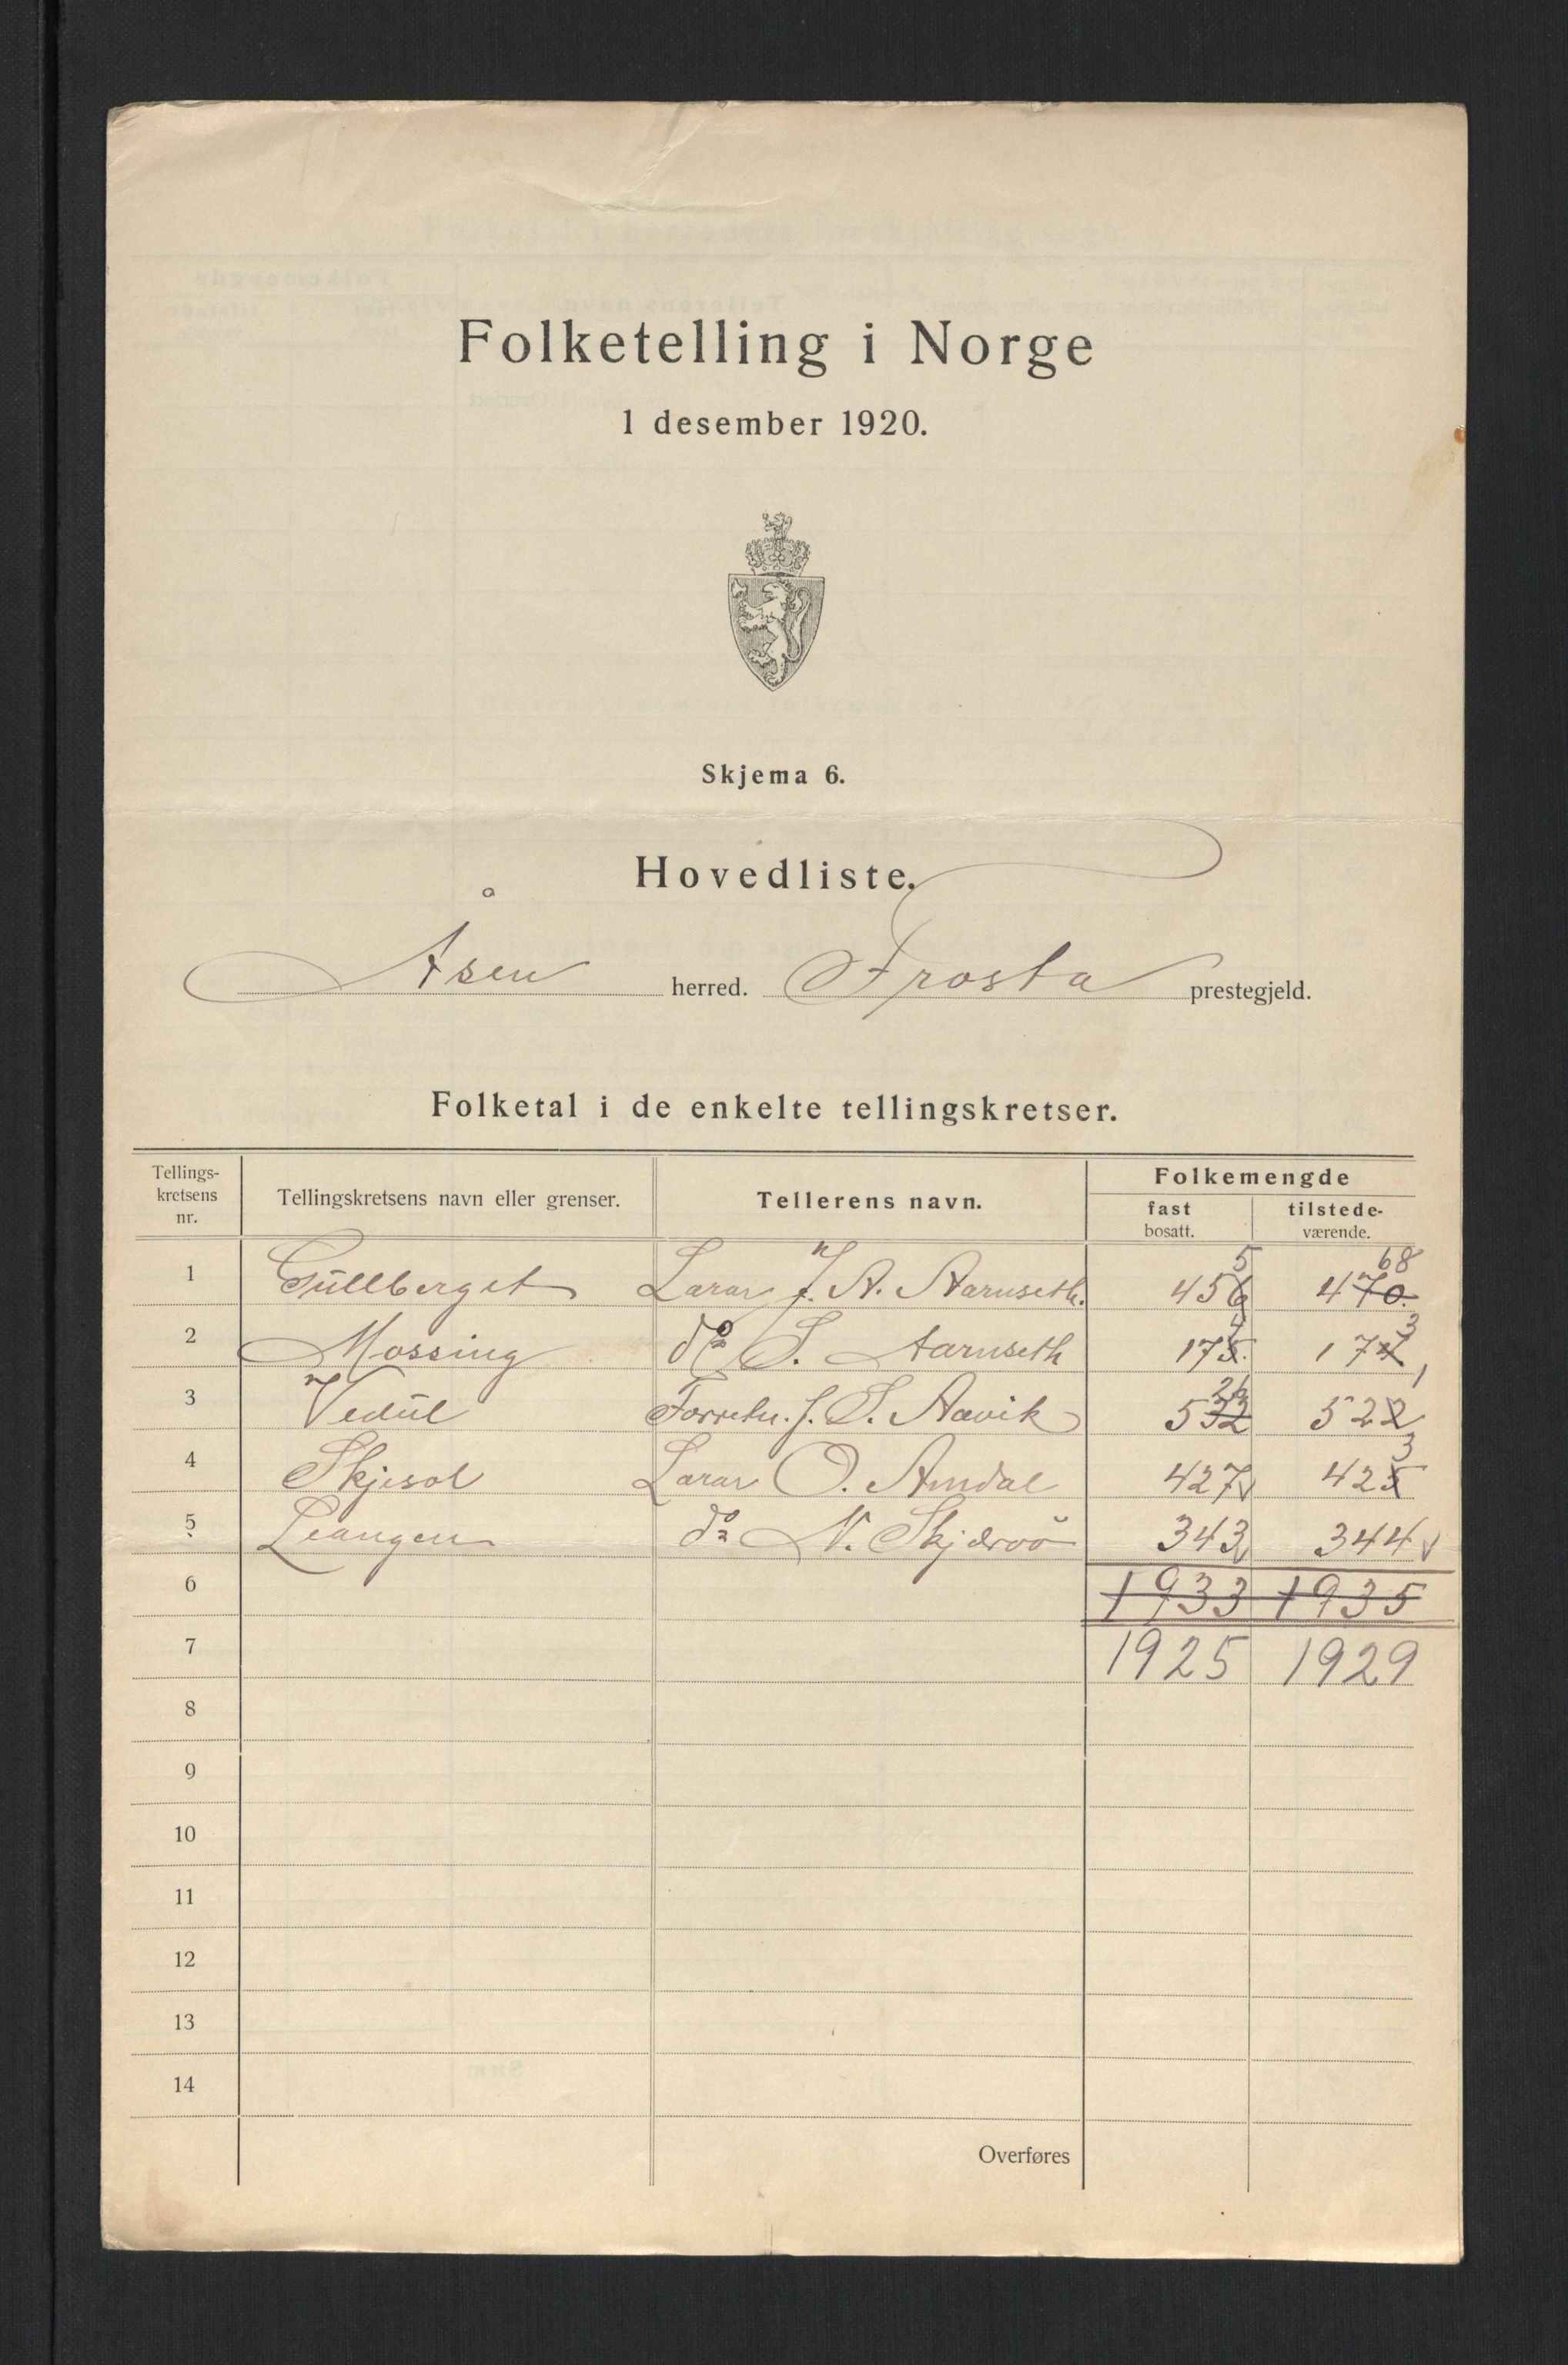 Folketelling i Norge
1 desember 1920.
Skjema 6.
Hovedliste.
Åsen herred. Frosta prestegjeld.
Folketal i de enkelte tellingskretser.
Tellings-
kretsens
nr.
Tellingskretsens navn eller grenser.
Tellerens navn.
Folkemengde
fast
bosatt.
tilstede-
værende.
5 68
1 Gullberget Lærer J. A. Aarnseth. 456 470.
4 3
2 Mossing do S. Aarnseth 175. 174
26 1
3 Vedul Forretn. f. S. Aavik 532 522
3
4 Skjesol Lærer O. Amdal 427 425
5 Leangen do N. Skjærvö 343 344
6 1933 1935
7 1925 1929
8
9
10
11
12
13
14
Overføres